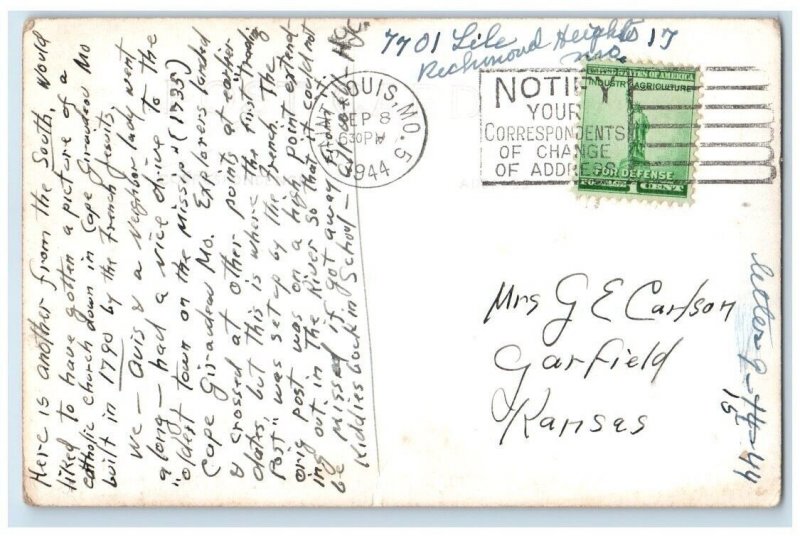 7701 Lile
Richmond Heights 17
Mo.
SAINT LOUIS, MO. 5
SEP 8
630 PM
1944
NOTIFY
YOUR
CORRESPONDENTS
OF CHANGE
OF ADDRESS
UNITED STATES OF AMERICA
INDUSTRY AGRICULTURE
FOR DEFENSE
1 CENT
Here is another from the South, Would
liked to have gotten a picture of a
catholic church down in Cape Girardeau Mo
built in 1790 by the French Jesuits,
We - Avis & a neighbor lady went
along - had a nice drive to the
"oldest town on the Missip." (1735)
Cape Girardeau Mo. Explorers landed
& crossed at other points at earlier
dates, but this is where the first "trading
Post" was set up by the French. The
orig post was on a high point extend-
ing out in the River so that it could not
be missed if got away from it.
Kiddies back in School -
Mrs G E Carlson
Garfield
Kansas
letter 9-14-44
15